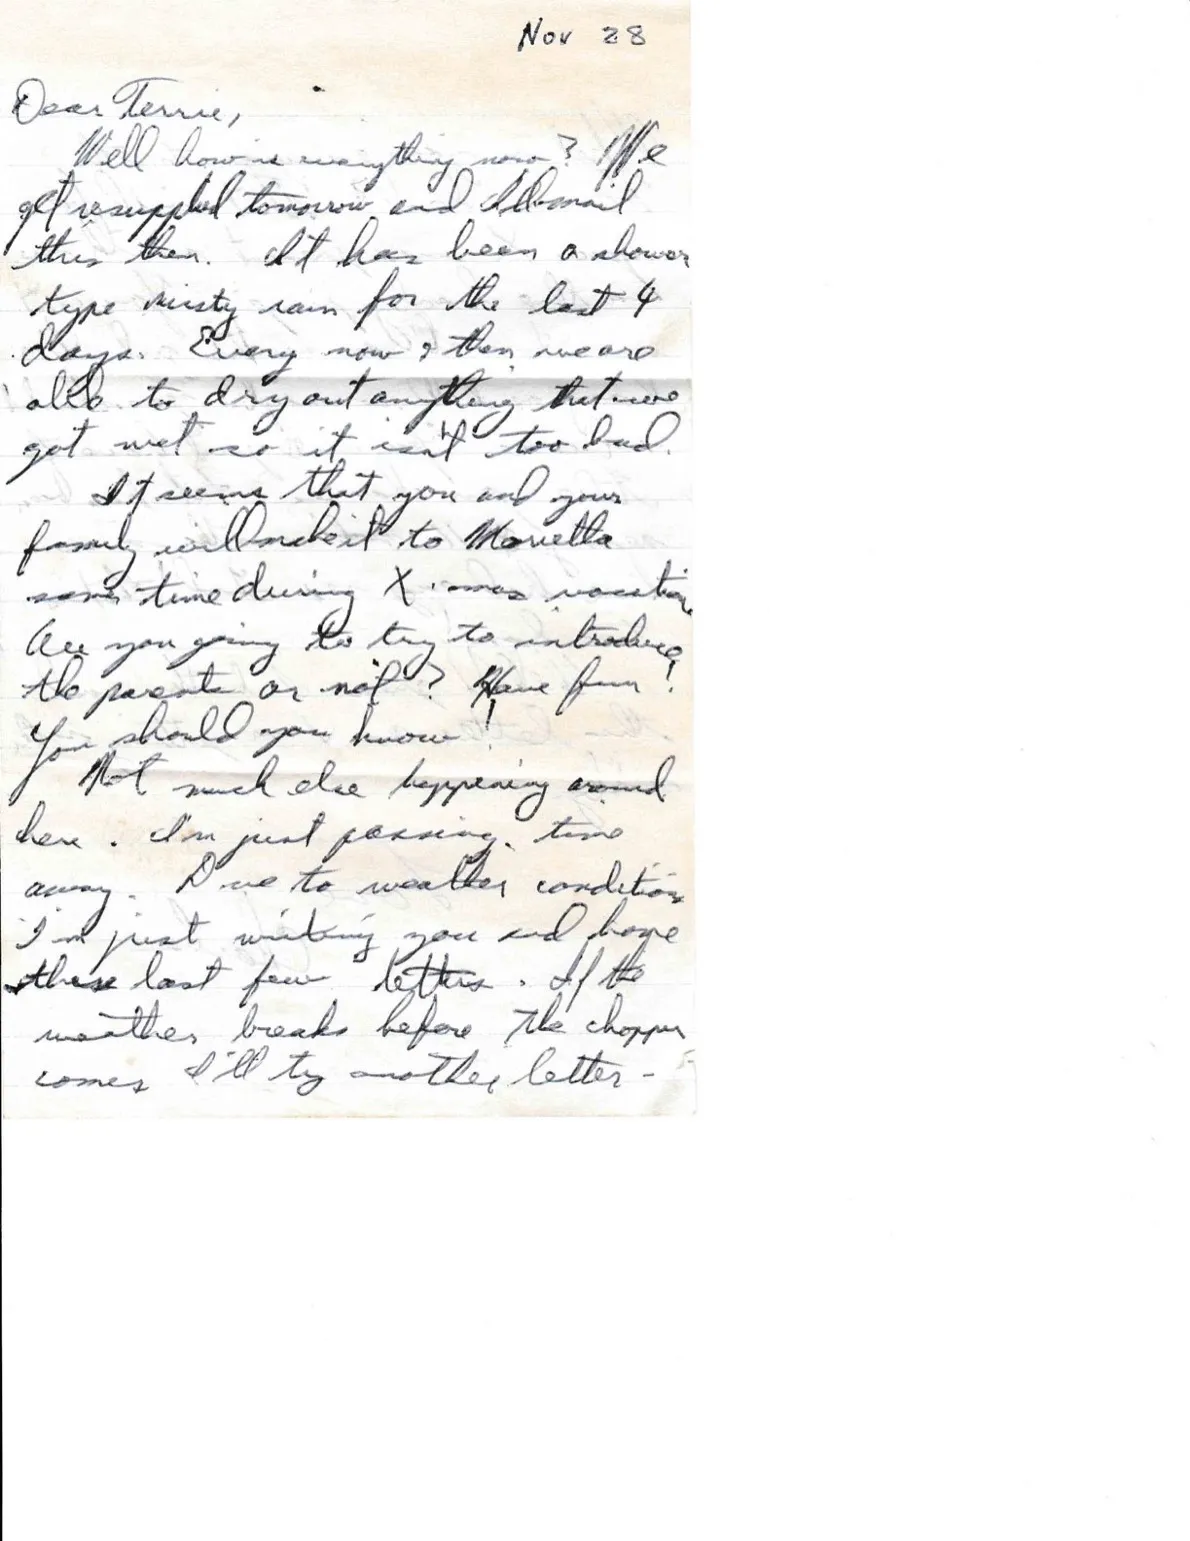 Nov 28
Dear Terrie,
Well how is everything now? We
get resupplied tomorrow and I'll mail
this then. It has been a shower
type misty rain for the last 4
days. Every now & then we are
able to dry out anything that we
got wet so it isn't too bad.
It seems that you and your
family will make it to Marietta
some time during X-mas vacation.
Are you going to try to introduce
the parents or not? Have fun!
You should you know!
Not much else happening around
here. I'm just passing time
away. Due to weather condition
I'm just writing you and home
these last few letters. If the
weather breaks before the chopper
comes I'll try another letter -